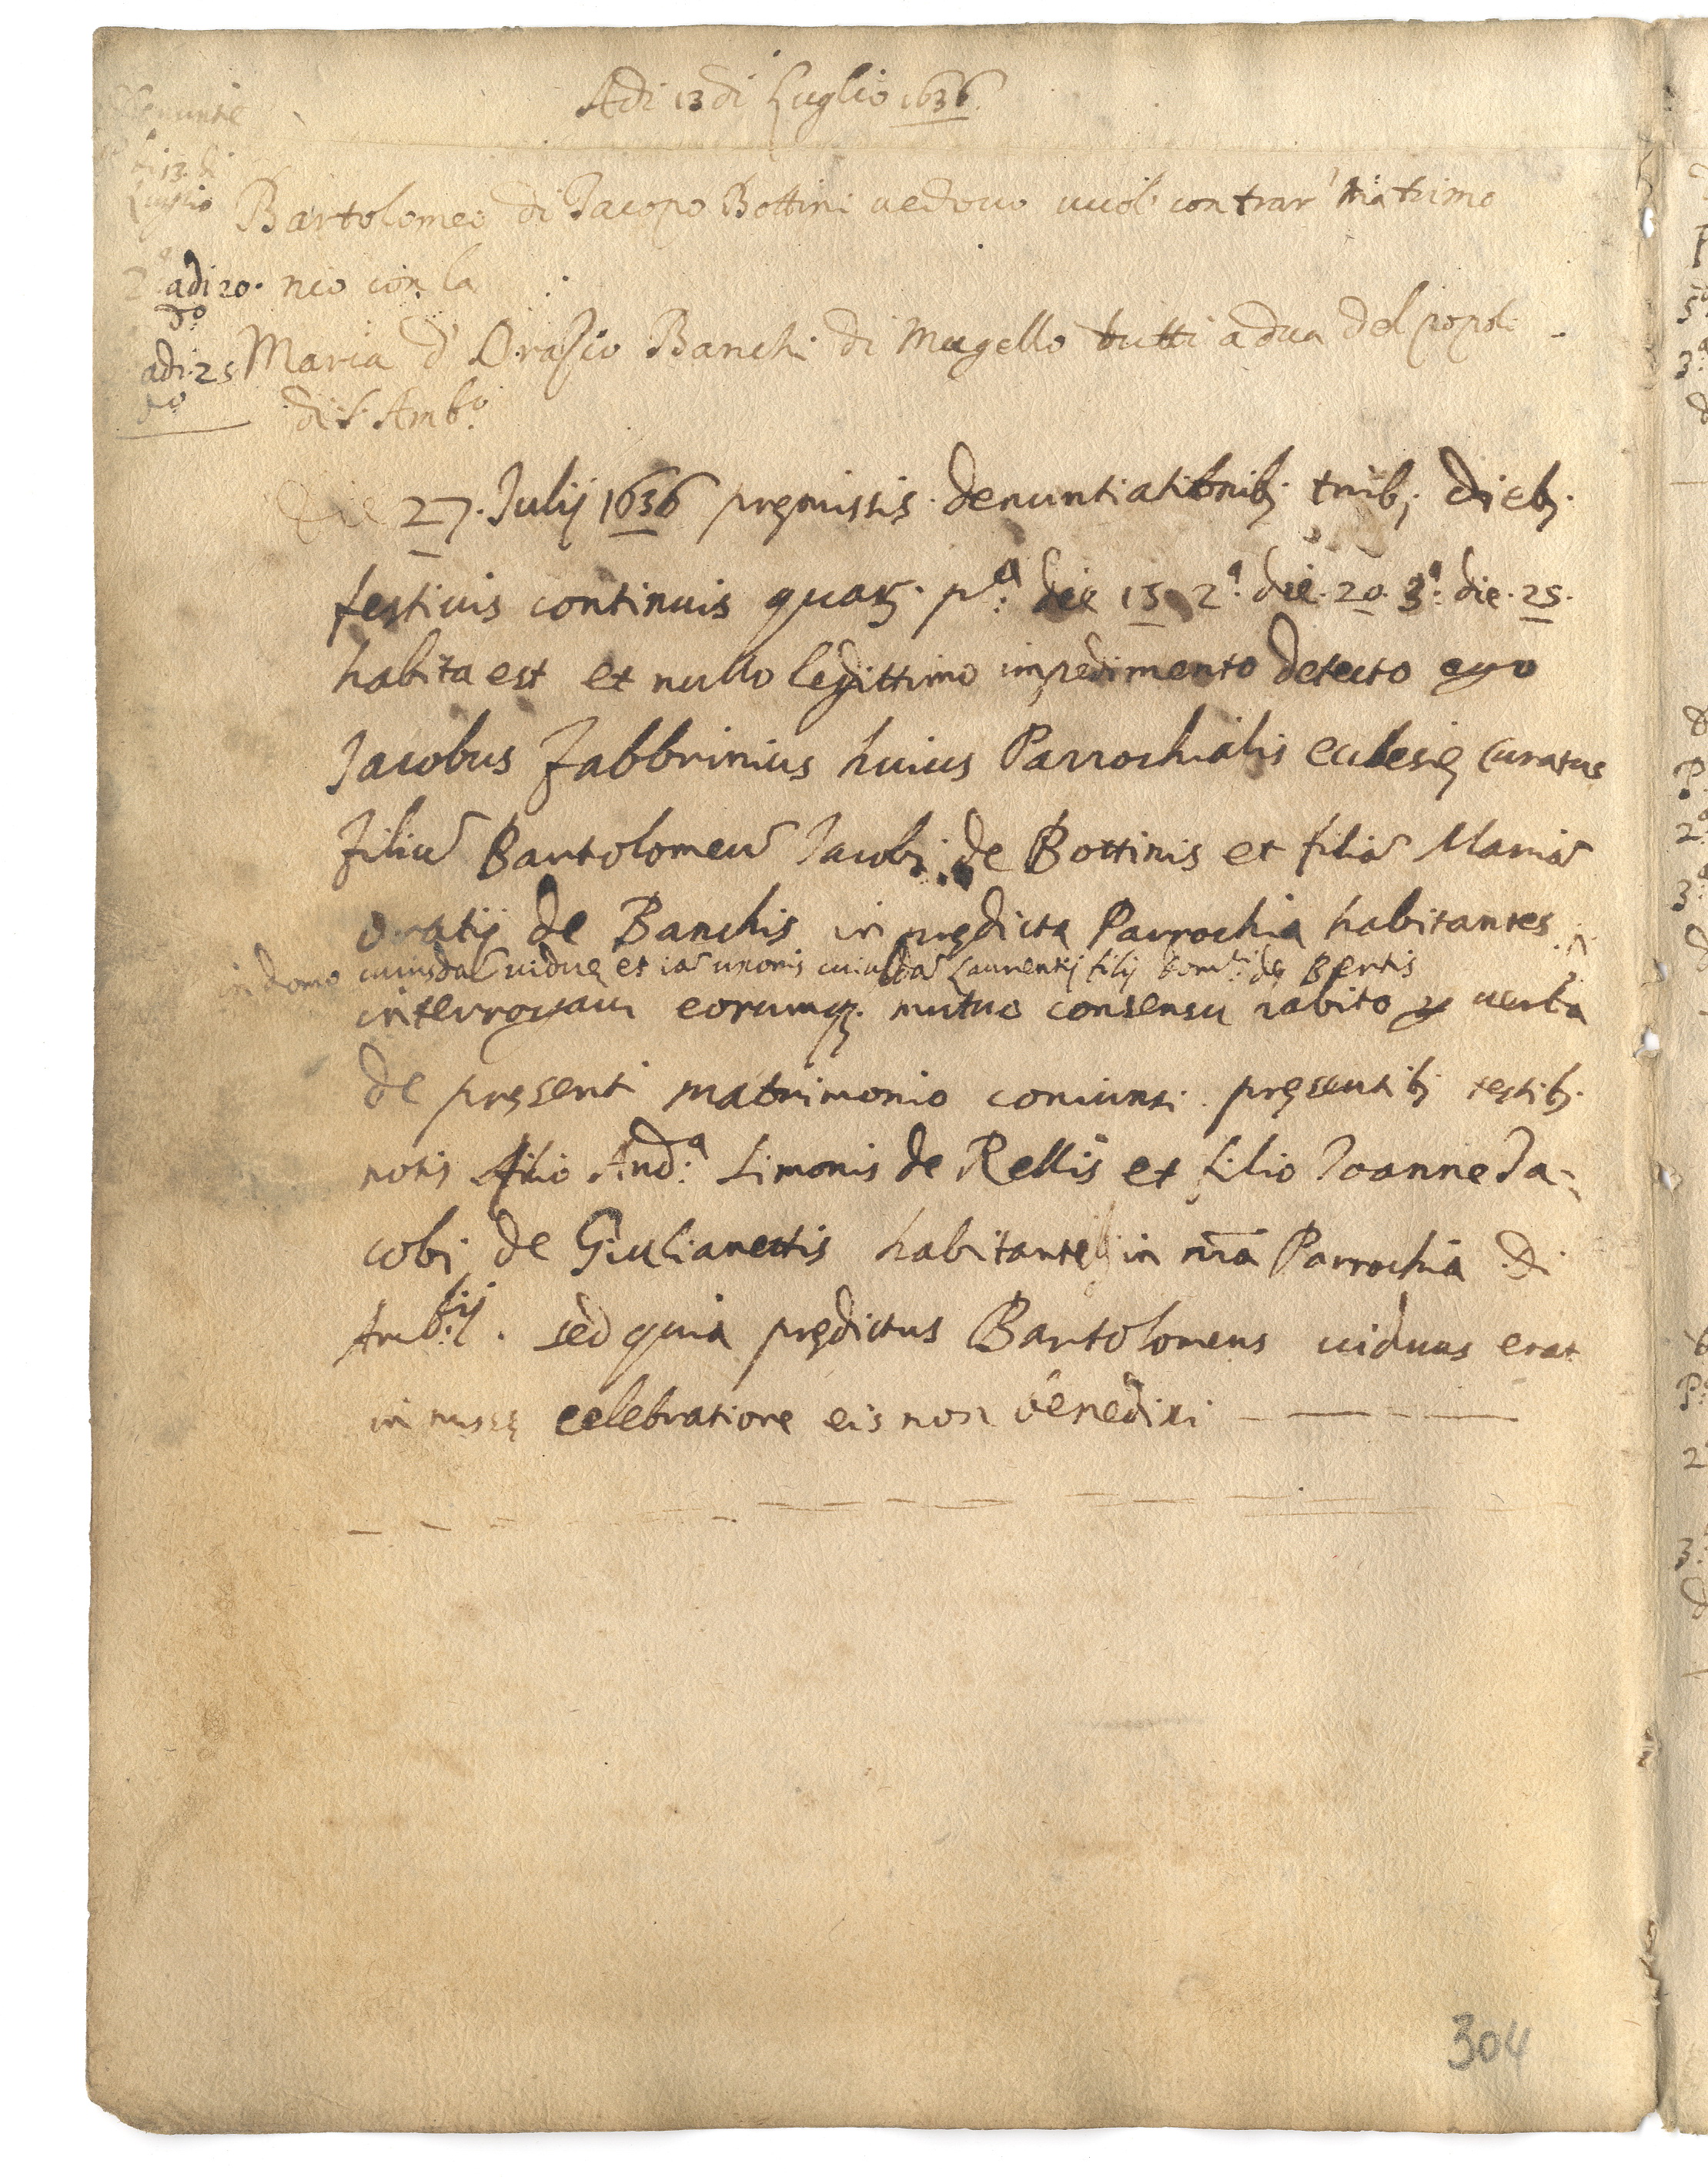 Adi 13 di Luglio 1636
denuntie
di 13 di
Luglio
Bartolomeo di Jacopo Bottini uedouo uuol' contrar' Matrimo
2ª adi 20. nio con la
dº
adi 25 Maria d' Orasio Banchi di Mugello tutti a dua del popol
dº
di S. Ambº
Die 27. Julij 1636 premissis denuntiationib; trib; dieb;
festiuis continuis quar. pª: die 13 2ª. die. 20. 3ª: die. 25.
habita est et nullo legittimo impedimento detecto ego
Jacobus Fabbrinius huius Parrochialis eclesię Curatus
filiū Bartolomeū Jacobi de Bottinis et filiā Mariā
oratij de Banchis in predicta Parrochia habitantes
in domo cuiusdā uiduę et iā uxoris cuiusdā Laurentij filij de Bertis
interrogaui eorumq; mutuo consensu habito p uerba
de pręsenti matrimonio coniunxi pręsentib; testib;
notis filio Andª: Simonis de Rellis et filio Joanne Ja-
cobi de Giulianettis habitantes in nrā Parrochia Di
Ambij. sed quia prędictus Bartolomeus uiduus erat
in missę celebratione eis non benedixi
304